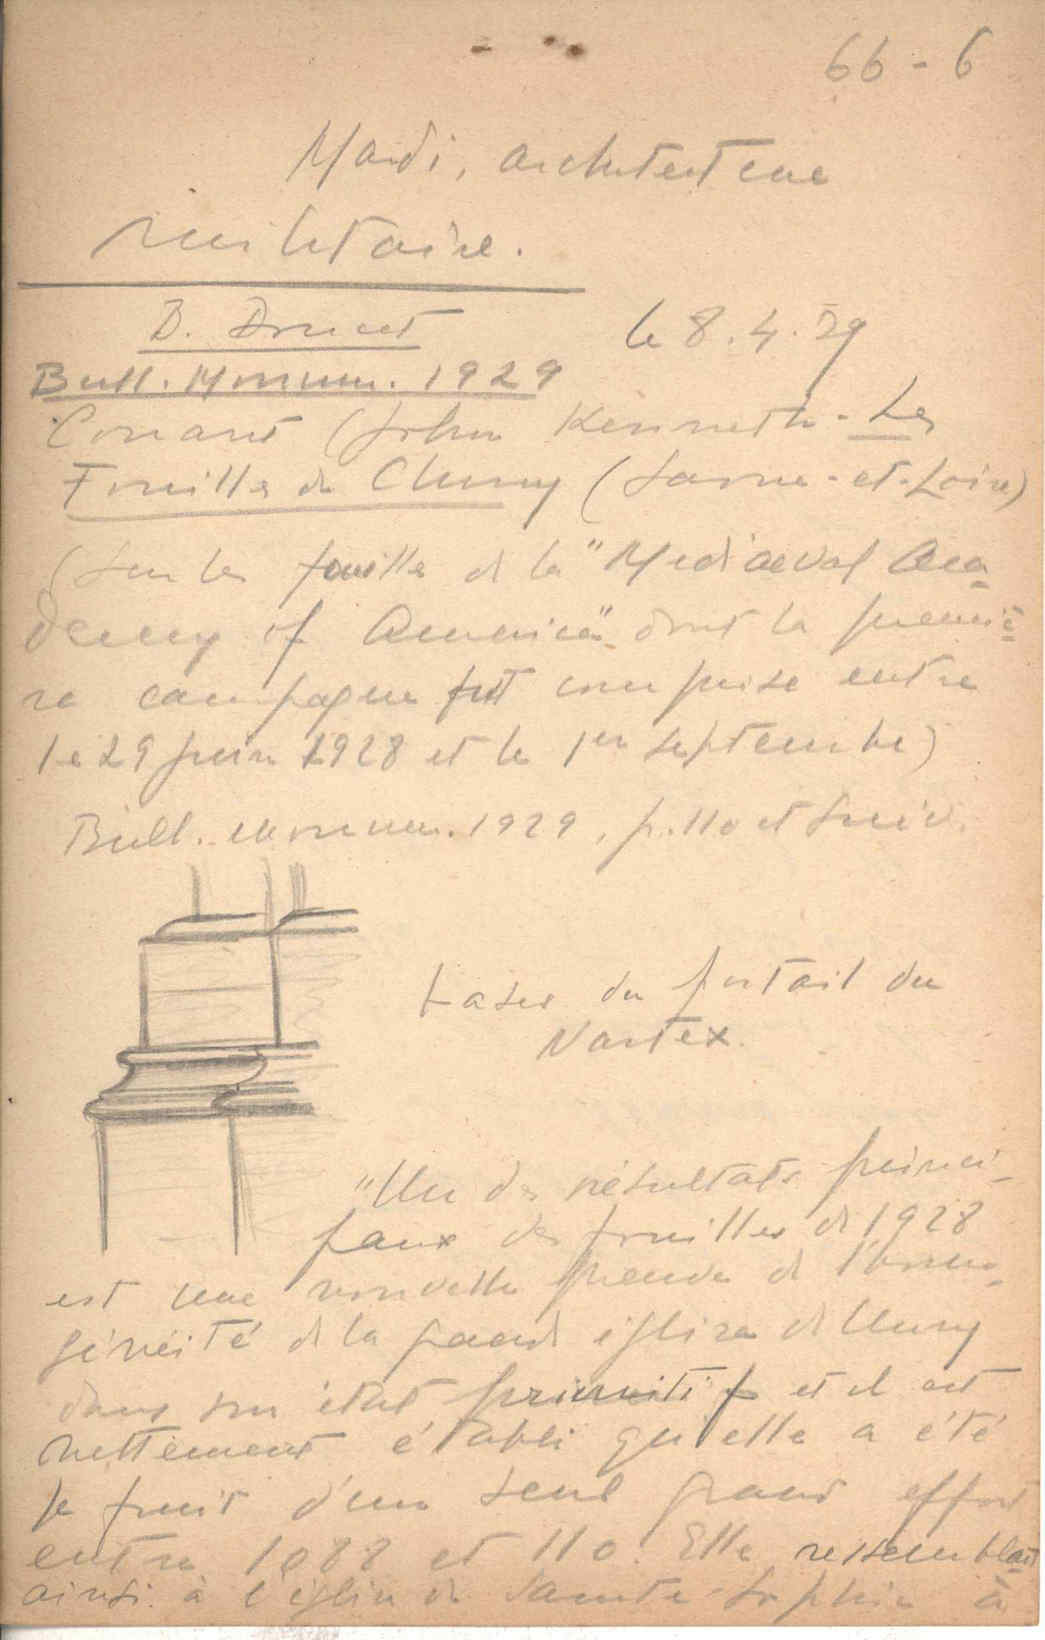 66 - 6
Mardi, architecture
militaire.
le 8.4.29
Bull. Monum. 1929
Conant (John Kenneth - Les
Fouilles de Cluny (Saône-et-Loire)
(Sur les fouilles de la "Mediaeval Aca-
demy of America" dont la premiè-
re campagne fut comprise entre
le 29 juin 1928 et le 1er septembre)
Bull. monum. 1929, p. 110 et suiv.
bases du portail du
Nartex.
"Un des résultats princi-
paux des fouilles de 1928
est une nouvelle preuve de l'homo-
généité de la grande église de Cluny
dans son état primitif et il est
nettement établi qu'elle a été
le fruit d'un seul grand effort
entre 1088 et 110. Elle ressemblait
ainsi à l'église de Sainte-Sophie à